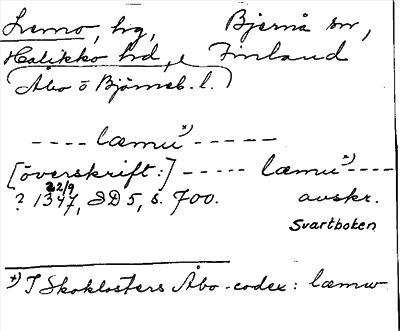 Lemo, hg, Bjernå sn,
Halikko hd, Finland
(Åbo o Björneb. l.)
---- læmu *) -----
[överskrift:] ----- læmu *) ----
22/9
? 1347, SD 5, s. 700. avskr.
Svartboken
*) I Skoklosters Åbo-codex: læmw